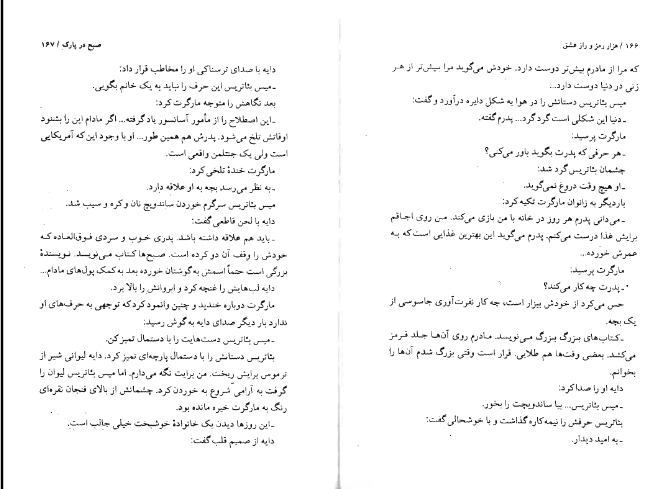 ۱۶۶ / هزار رمز و راز عشق
که مرا از مادرم بیش‌تر دوست دارد. خودش می‌گوید مرا بیش‌تر از هر
زنی در دنیا دوست دارد...
میس بئاتریس دستانش را در هوا به شکل دایره درآورد و گفت:
ـ دنیا این شکلی است گرد گرد... پدرم گفته.
مارگرت پرسید:
ـ هر حرفی که پدرت بگوید باور می‌کنی؟
چشمان بئاتریس گرد شد:
ـ او هیچ وقت دروغ نمی‌گوید.
باردیگر به زانوان مارگرت تکیه کرد:
ـ می‌دانی پدرم هر روز در خانه با من بازی می‌کند. من روی اجاقم
برایش غذا درست می‌کنم. پدرم می‌گوید این بهترین غذایی است که به
عمرش خورده...
مارگرت پرسید:
ـ پدرت چه کار می‌کند؟
حس می‌کرد از خودش بیزار است، چه کار نفرت‌آوری جاسوسی از
یک بچه.
ـ کتاب‌های بزرگ بزرگ می‌نویسد. مادرم روی آن‌ها جلد قرمز
می‌کشد. بعضی وقت‌ها هم طلایی. قرار است وقتی بزرگ شدم آن‌ها را
بخوانم.
دایه او را صدا کرد:
ـ میس بئاتریس... بیا ساندویچت را بخور.
بئاتریس حرفش را نیمه‌کاره گذاشت و با خوشحالی گفت:
ـ به امید دیدار.
صبح در پارک / ۱۶۷
دایه با صدای ترسناکی او را مخاطب قرار داد:
ـ میس بئاتریس این حرف را نباید به یک خانم بگویی.
بعد نگاهش را متوجه مارگرت کرد:
ـ این اصطلاح را از مأمور آسانسور یاد گرفته... اگر مادام این را بشنود
اوقاتش تلخ می‌شود. پدرش هم همین طور... او با وجود این که آمریکایی
است ولی یک جنتلمن واقعی است.
مارگرت خندهٔ تلخی کرد:
ـ به نظر می‌رسد بچه به او علاقه دارد.
میس بئاتریس سرگرم خوردن ساندویچ نان و کره و سیب شد.
دایه با لحن قاطعی گفت:
ـ باید هم علاقه داشته باشد. پدری خوب و سردی فوق‌العاده که
خودش را وقف آن دو کرده است. صبح‌ها کتاب می‌نویسد. نویسندهٔ
بزرگی است حتماً اسمش به گوشتان خورده بعد به کمک پول‌های مادام...
دایه لب‌هایش را غنچه کرد و ابروانش را بالا برد.
مارگرت دوباره خندید و چنین وانمود کرد که توجهی به حرف‌های او
ندارد بار دیگر صدای دایه به گوش رسید:
ـ میس بئاتریس دست‌هایت را با دستمال تمیز کن.
بئاتریس دستانش را با دستمال پارچه‌ای تمیز کرد. دایه لیوانی شیر از
ترموس برایش ریخت. من برایت نگه می‌دارم. اما میس بئاتریس لیوان را
گرفت به آرامی شروع به خوردن کرد. چشمانش از بالای فنجان نقره‌ای
رنگ به مارگرت خیره مانده بود.
ـ این روزها دیدن یک خانوادهٔ خوشبخت خیلی جالب است.
دایه از صمیم قلب گفت: